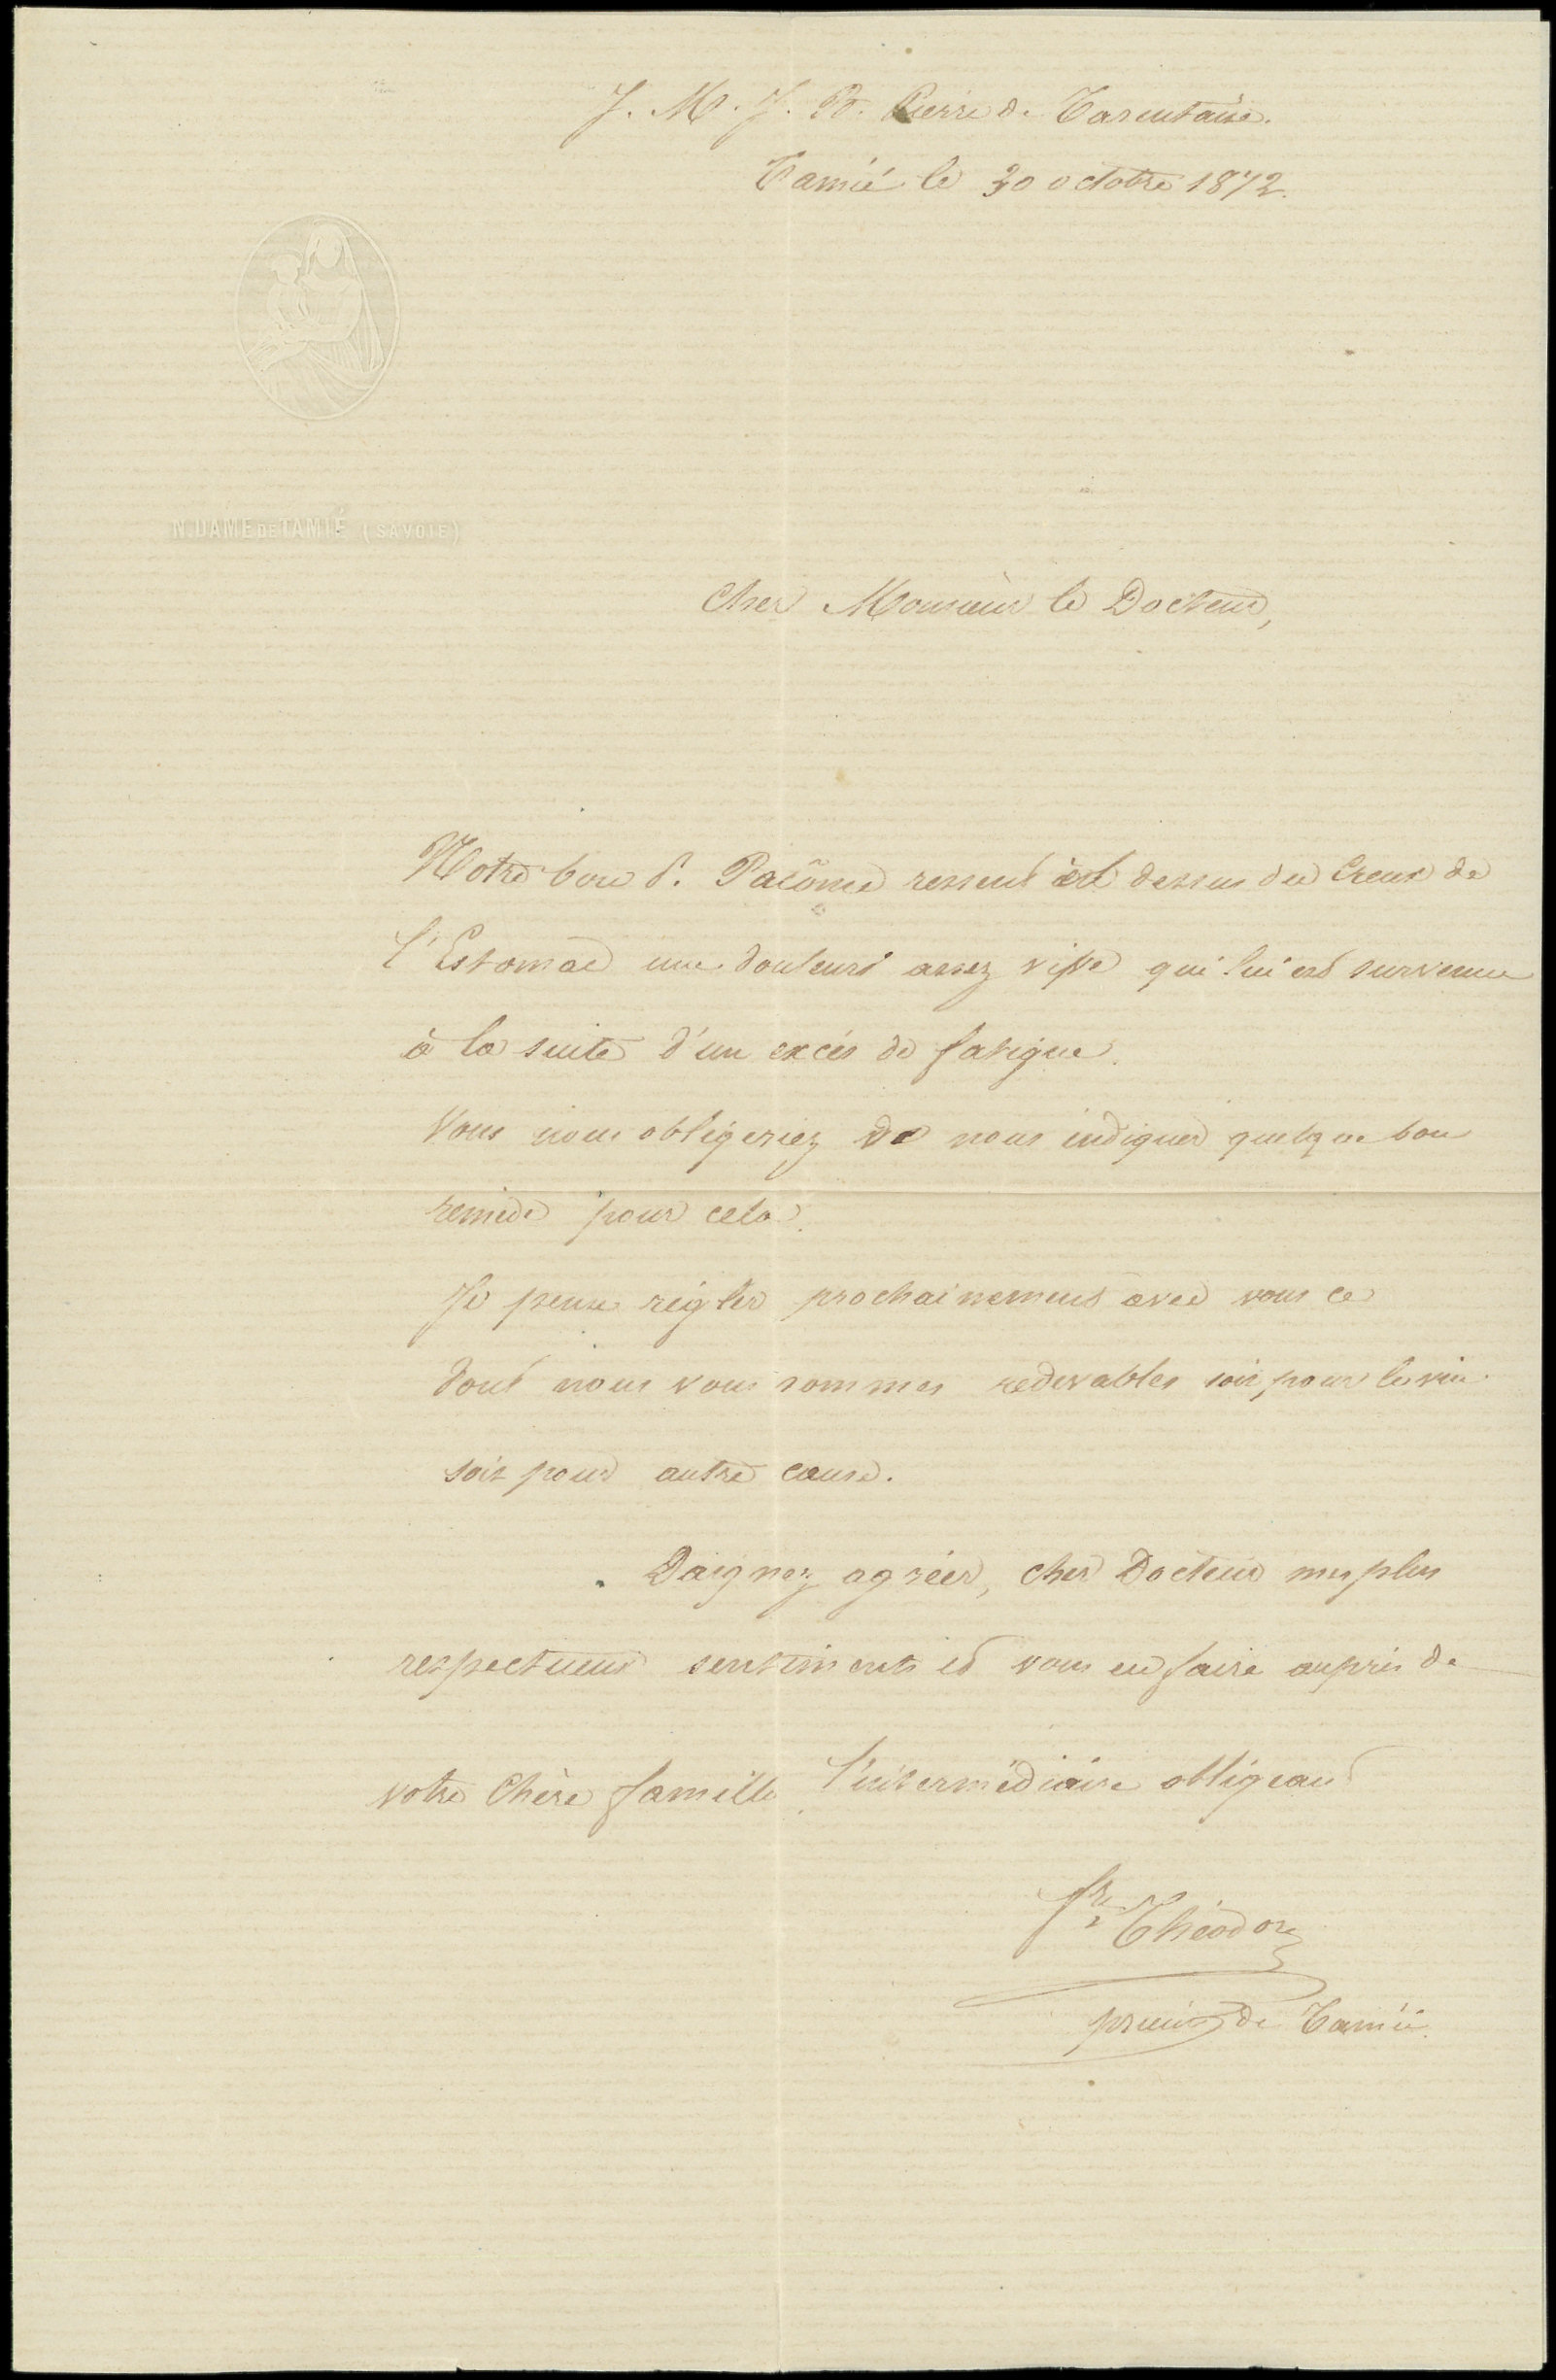 J. M. J. St. Pierre de Tarentaise.
Tamié le 30 octobre 1872.
N. DAME DE TAMIÉ (SAVOIE)
Cher Monsieur le Docteur,
Notre bon P. Pacôme ressent au dessus du Creux de
l'Estomac une douleur assez vive qui lui est survenue
à la suite d'un excés de fatigue.
Vous nous obligeriez de nous indiquer quelque bon
remède pour cela.
Je pense régler prochainement avec vous ce
dont nous vous sommes redevables soit pour le vin
soit pour autre cause.
Daignez agréer, cher Docteur mes plus
respectueux sentiments et vous en faire auprès de
votre Chère famille l'intermédiaire obligeant
fr. Théodore
prieur de Tamié.